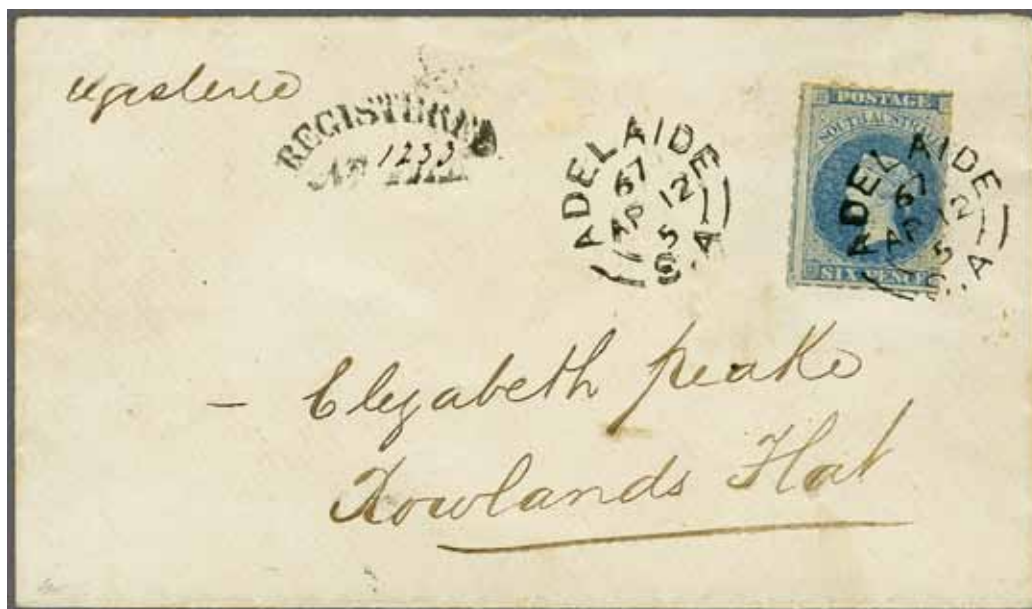 registered
REGISTERED
1233
ADELAIDE
67
AP 12
5
S.A
POSTAGE
SOUTH AUSTRALIA
SIX PENCE
ADELAIDE
67
AP 12
5
S.A
– Elizabeth peake
Rowlands Flat